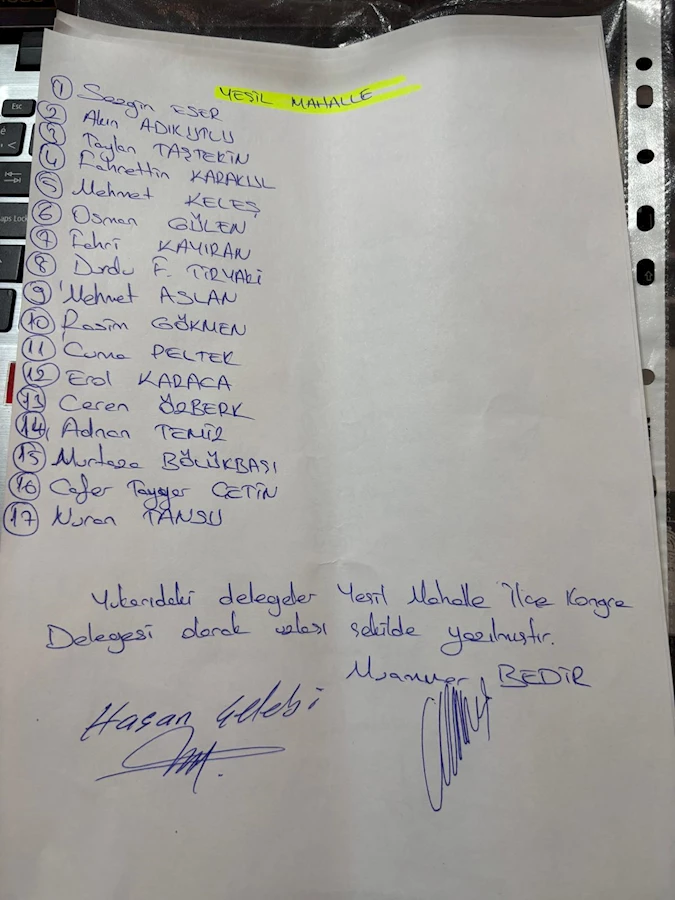 YEŞİL MAHALLE
1 Sezgin ESER
2 Akın ADIKUTLU
3 Taylan TAŞTEKİN
4 Fahrettin KARAKUL
5 Mehmet KELEŞ
6 Osman GÜLEN
7 Fahri KAYIRAN
8 Durdu F. TİRYAKİ
9 Mehmet ASLAN
10 Rasim GÖKMEN
11 Cuma PELTEK
12 Erol KARACA
13 Ceren ÖZBERK
14 Adnan TEMİZ
15 Murtaza BÖLÜKBAŞI
16 Cafer Tayyar ÇETİN
17 Nuran TANSU
Yukarıdaki delegeler Yeşil Mahalle İlçe Kongre
Delegesi olarak şekilde yazılmıştır.
Muammer BEDİR
Hasan Çelebi